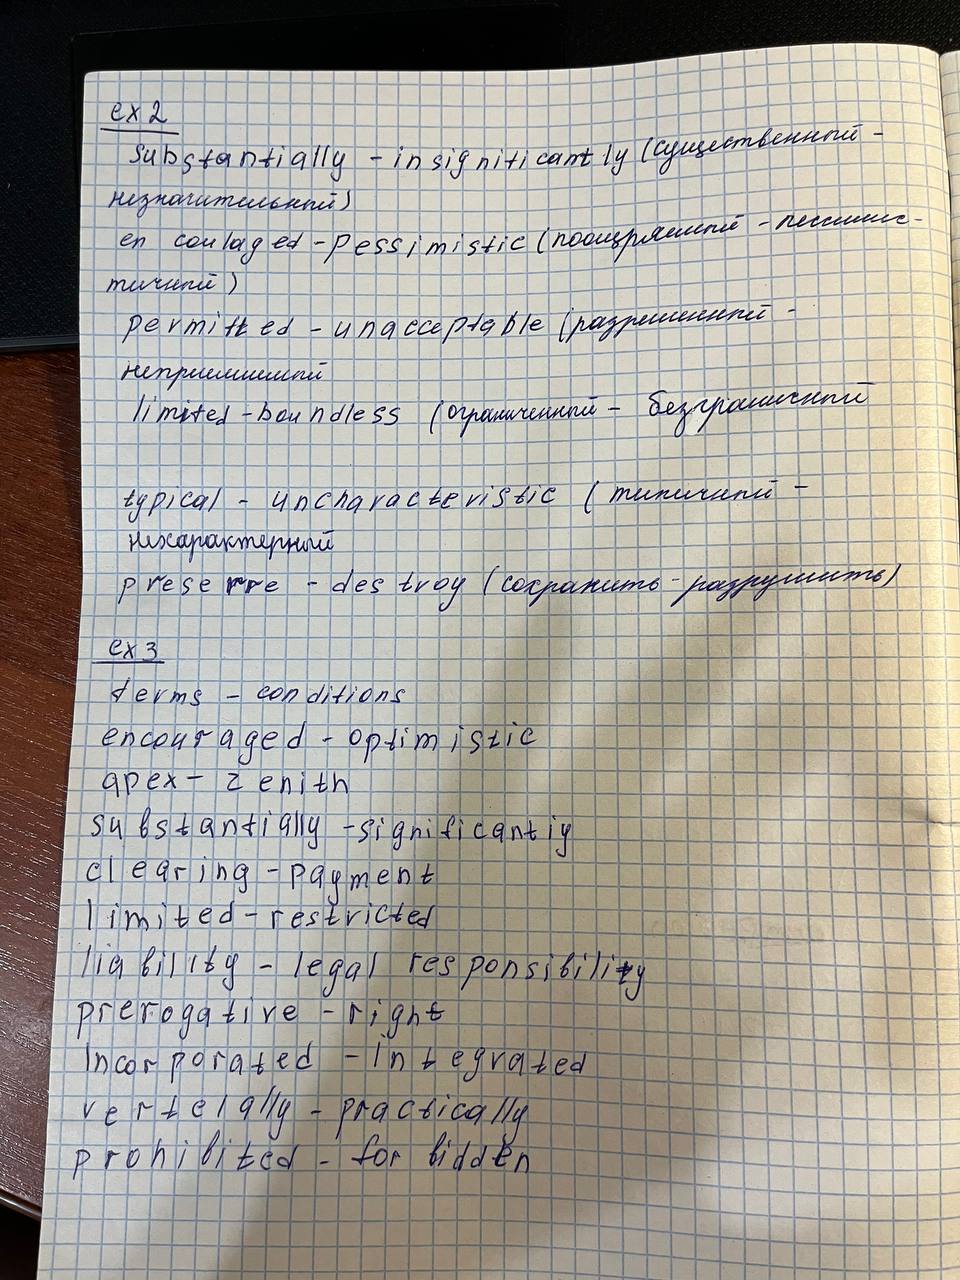 ex 2
substantially - insignificantly (существенный -
незначительный)
en couraged - pessimistic (поощряемый - пессимис-
тичный)
permitted - unacceptable (разрешенный -
неприемлимый
limited - boundless (ограниченный - безграничный
typical - uncharacteristic ( типичный -
нехарактерный
preserre - destroy (сохранить - разрушить)
ex 3
terms - conditions
encouraged - optimistic
apex - zenith
substantially - significantiy
clearing - payment
limited - restricted
liability - legal responsibility
prerogative - right
incorporated - integrated
vertelally - practically
prohibited - for bidden